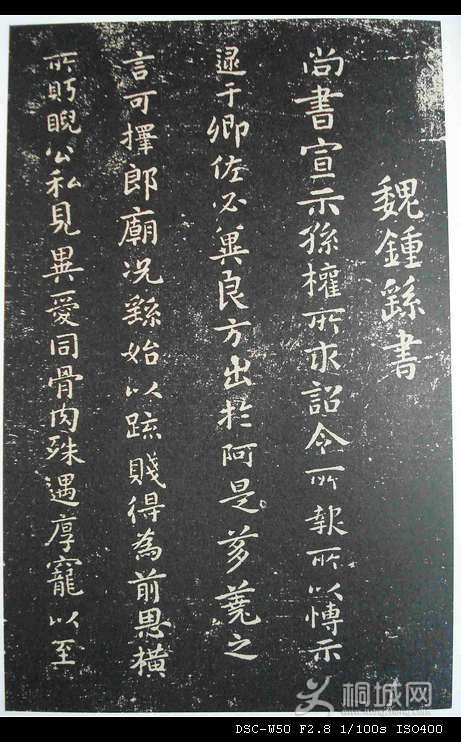 魏鍾繇書
尚書宣示孫權所求詔令所報所以愽示
逮于卿佐必冀良方出於阿是芻蕘之
言可擇郎廟況繇始以疏賤得為前恩橫
所眄睨公私見異愛同骨肉殊遇厚寵以至
桐城网
DSC-W50 F2.8 1/100s ISO400